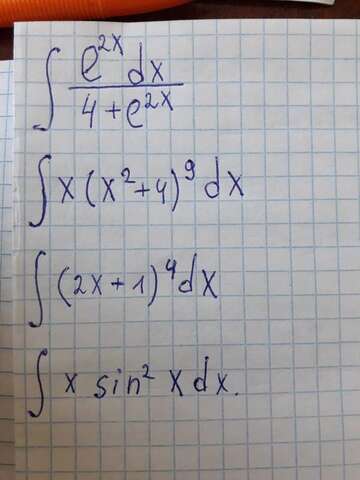 ∫ e^{2x} dx / (4 + e^{2x})
∫ x (x² + 4)⁹ dx
∫ (2x + 1)⁴ dx
∫ x sin² x dx.